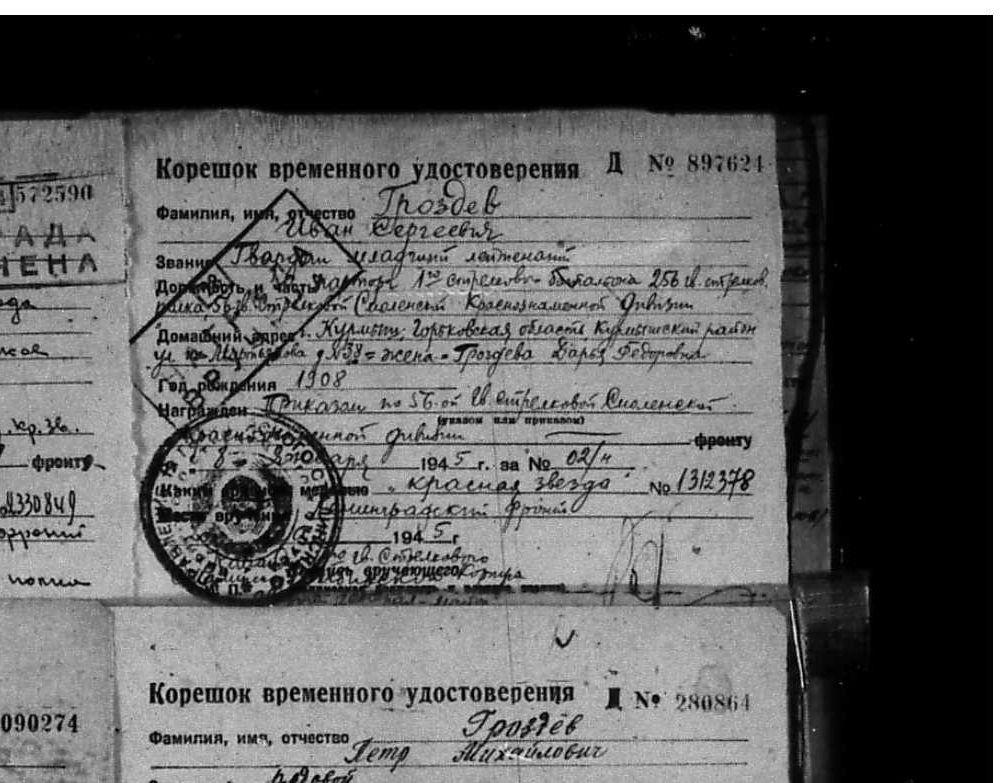 572590
Корешок временного удостоверения Д № 897624
АДА
НЕНА
Фамилия, имя, отчество Гроздев
Иван Сергеевич
Звание Гвардии младший лейтенант
Должность и часть парторг 1го стрелков. батальона 256 гв. стрелков.
полка 56 гв. Стрелковой Смоленской Краснознаменной дивизии
Домашний адрес г. Курмыш, Горьковская область Курмышский район
ул. д №38 = жена = Гроздева Дарья Федоровна
Год рождения 1908
Награжден Приказом по 56-ой гв стрелковой Смоленской
(указом или приказом)
Кр. Зв.
Краснознаменной дивизии фронту
фронту
8 января 1945 г. за № 02/н
Каким орденом медалью "красная звезда" № 1312378
2330849
Место вручения Ленинградский фронт
1945 г
гв. Стрелкового
Подпись вручающего Корпуса
Корешок временного удостоверения Д № 280864
090274
Фамилия, имя, отчество Гроздев
Петр Михайлович
рядовой